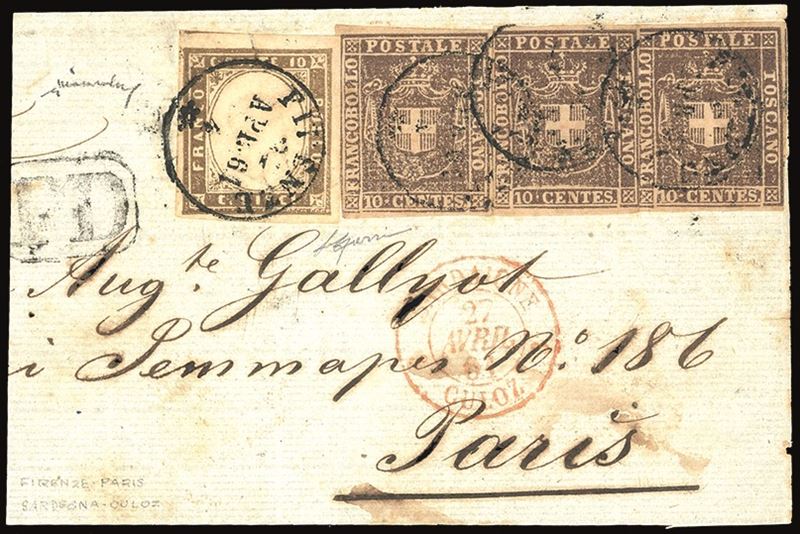 C. DIECI 10
FRANCO
FIRENZE
APR. 61
POSTALE
FRANCOBOLLO
TOSCANO
10 CENTES
POSTALE
FRANCOBOLLO
TOSCANO
10 CENTES
POSTALE
FRANCOBOLLO
TOSCANO
10 CENTES
PD
Aug.te Gallyot
SARDAIGNE
27
AVRIL
61
CULOZ
i Jemmapes No. 186
Paris
FIRENZE-PARIS
SARDEGNA-CULOZ